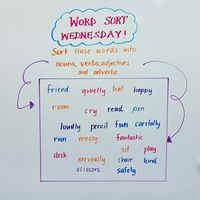 WORD SORT
WEDNESDAY!
Sort these words into
nouns, verbs, adjectives
and adverbs.
friend quietly hat happy
room cry read pen
loudly pencil fun carefully
run messy fantastic
desk sit play
nervously chair kind
scissors safely